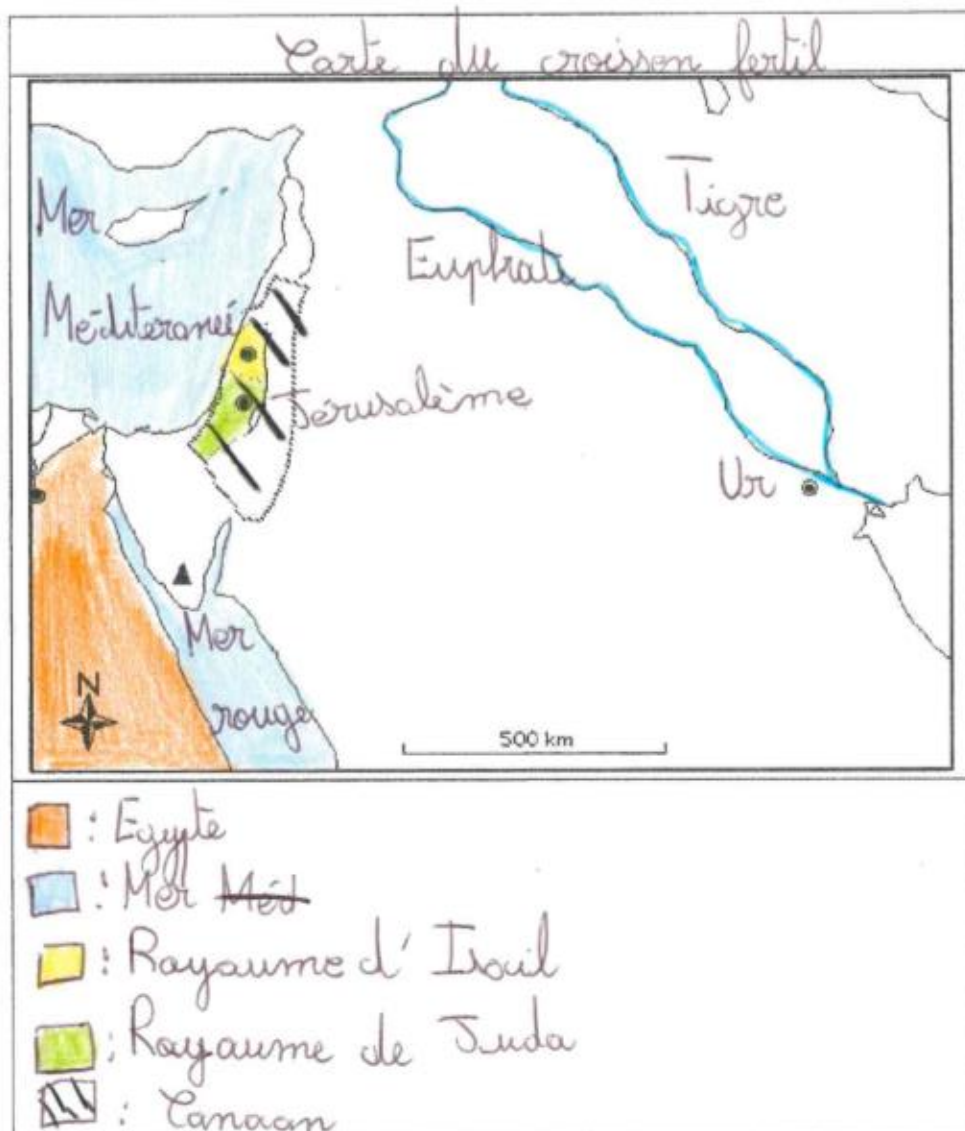 Carte du croisson fertil
Mer
Méditeranée
Tigre
Euphrate
Jérusalème
Ur
Mer
rouge
N
500 km
: Egypte
: Mer Méd
: Royaume d'Israil
: Royaume de Juda
: Canaan